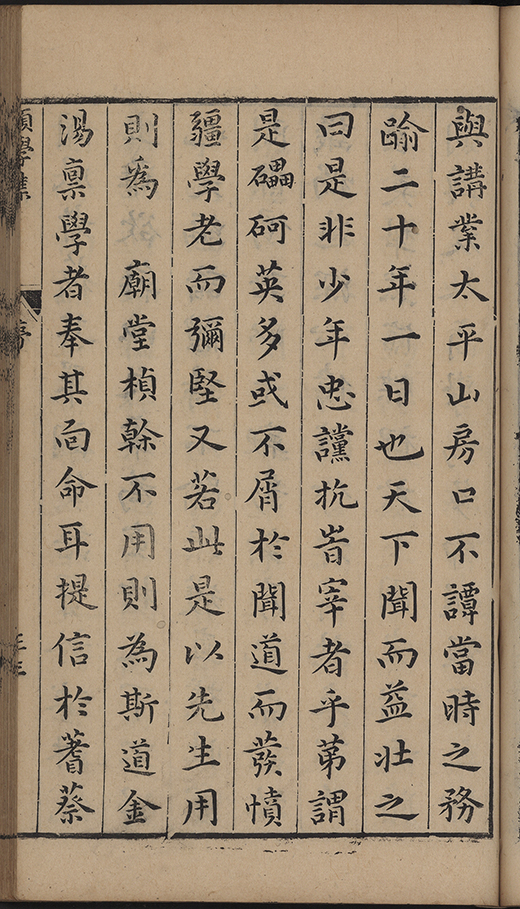 與講業太平山房口不譚當時之務
踰二十年一日也天下聞而益壯之
曰是非少年忠讜抗旹宰者乎苐謂
是礧砢英多或不屑於聞道而發憤
彊學老而彌堅又若此是以先生用
則為 廟堂楨榦不用則為斯道金
湯禀學者奉其面命耳提信於蓍蔡